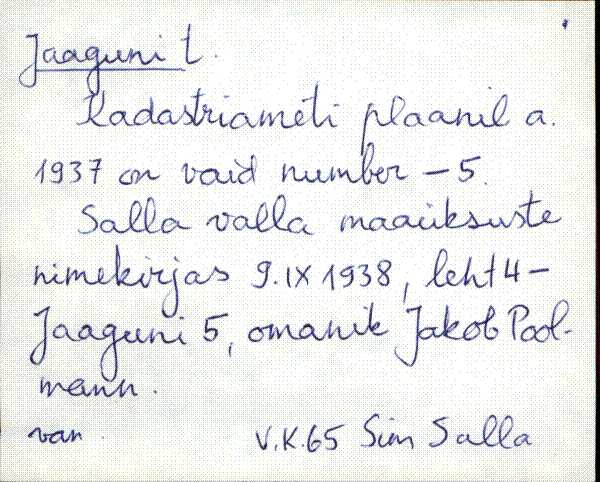 Jaaguni t.
Kadastriameti plaanil a.
1937 on vaid number – 5.
Salla valla maaüksuste
nimekirjas 9.IX 1938, leht 4 –
Jaaguni 5, omanik Jakob Pool-
mann.
van V.K.65 Sim Salla